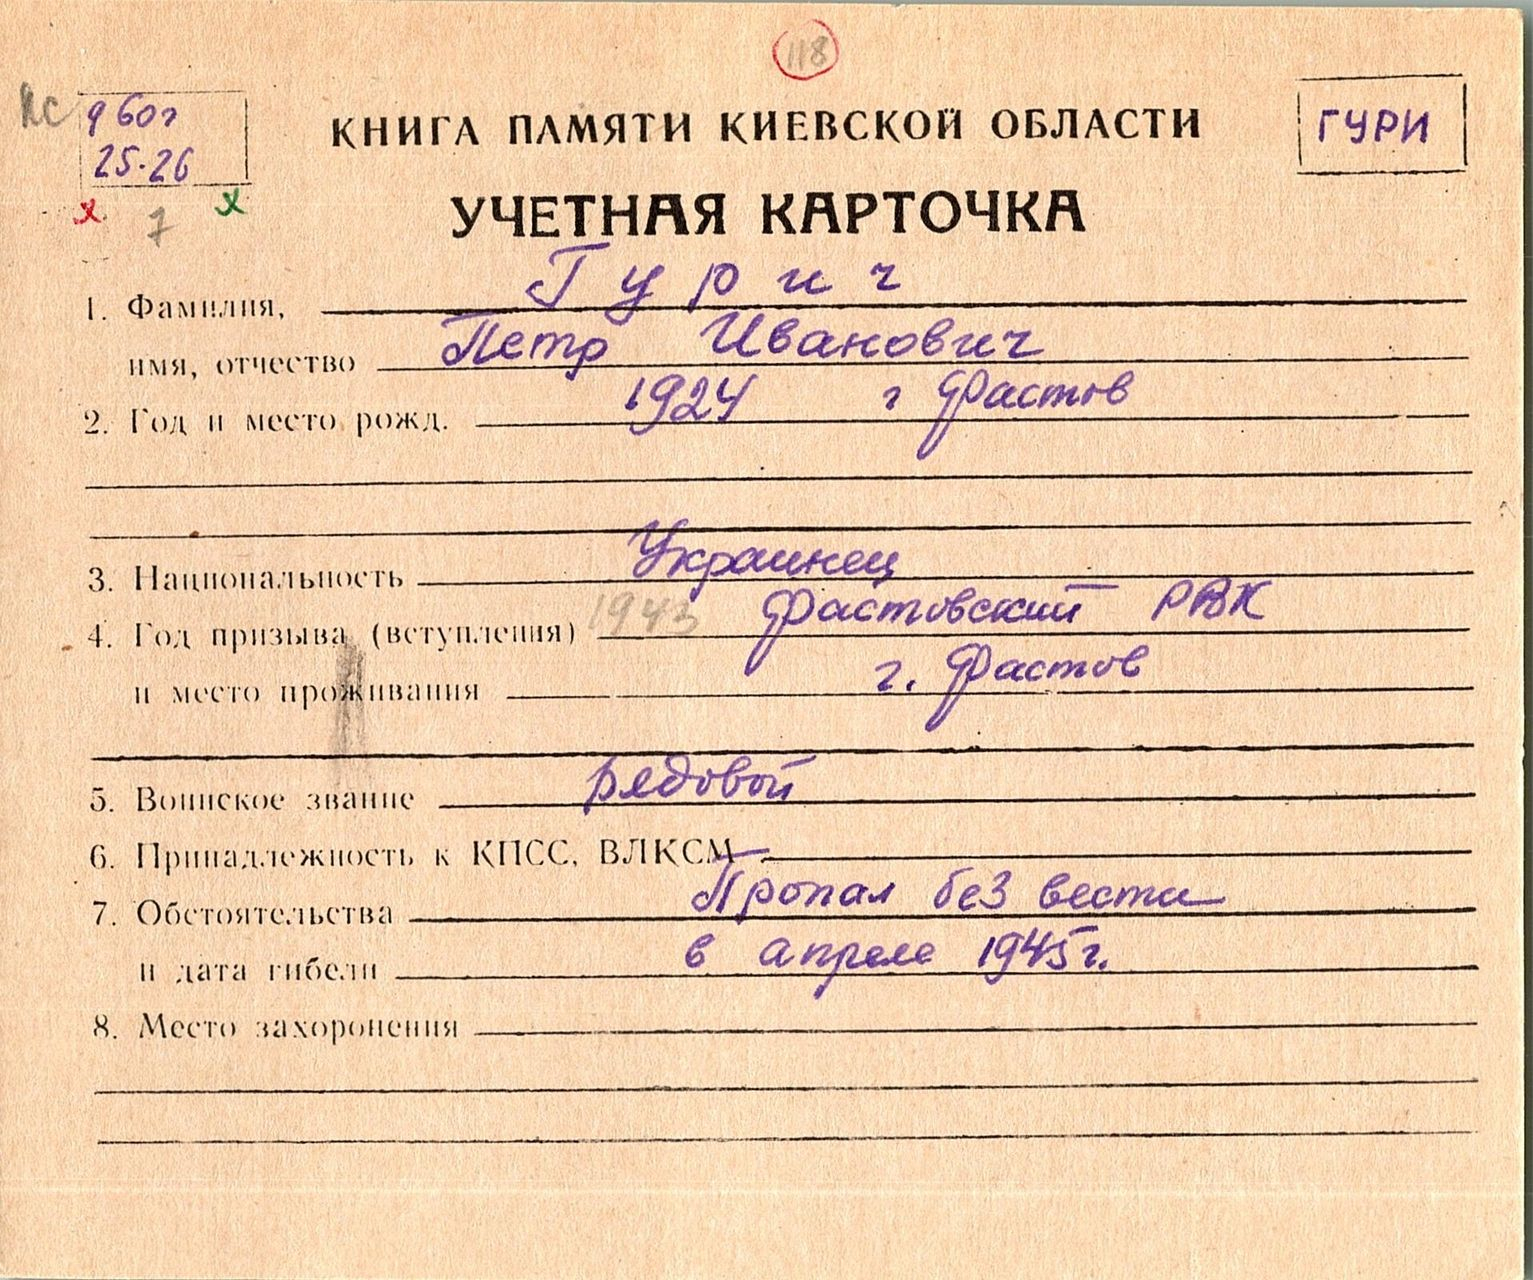 118
КНИГА ПАМЯТИ КИЕВСКОЙ ОБЛАСТИ
ГУРИ
25-26
х х
7
УЧЕТНАЯ КАРТОЧКА
1. Фамилия, Гурич
имя, отчество Петр Иванович
2. Год и место рожд. 1924 г Фастов
3. Национальность Украинец
4. Год призыва (вступления) 1943 Фастовский РВК
и место проживания г. Фастов
5. Воинское звание Рядовой
6. Принадлежность к КПСС, ВЛКСМ —
7. Обстоятельства Пропал без вести
и дата гибели в апреле 1945г.
8. Место захоронения